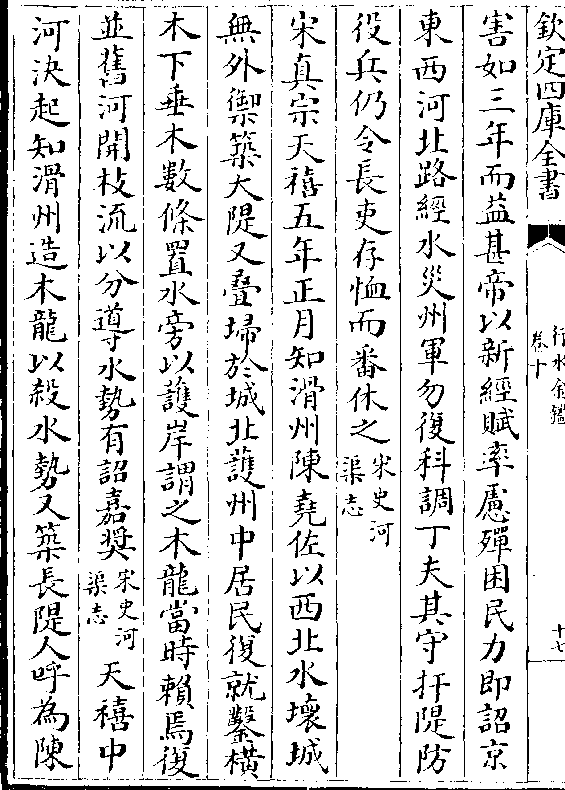 欽定四庫全書
行水金鑑
卷十
十七
害如三年而益甚帝以新經賦率慮殫困民力即詔京
東西河北路經水災州軍勿復科調丁夫其守扞隄防
役兵仍令長吏存恤而番休之宋史河渠志
宋真宗天禧五年正月知滑州陳堯佐以西北水壞城
無外禦築大隄又疊埽於城北護州中居民復就鑿橫
木下垂木數條置水旁以護岸謂之木龍當時賴焉復
並舊河開枝流以分導水勢有詔嘉奬宋史河渠志天禧中
河決起知滑州造木龍以殺水勢又築長隄人呼為陳